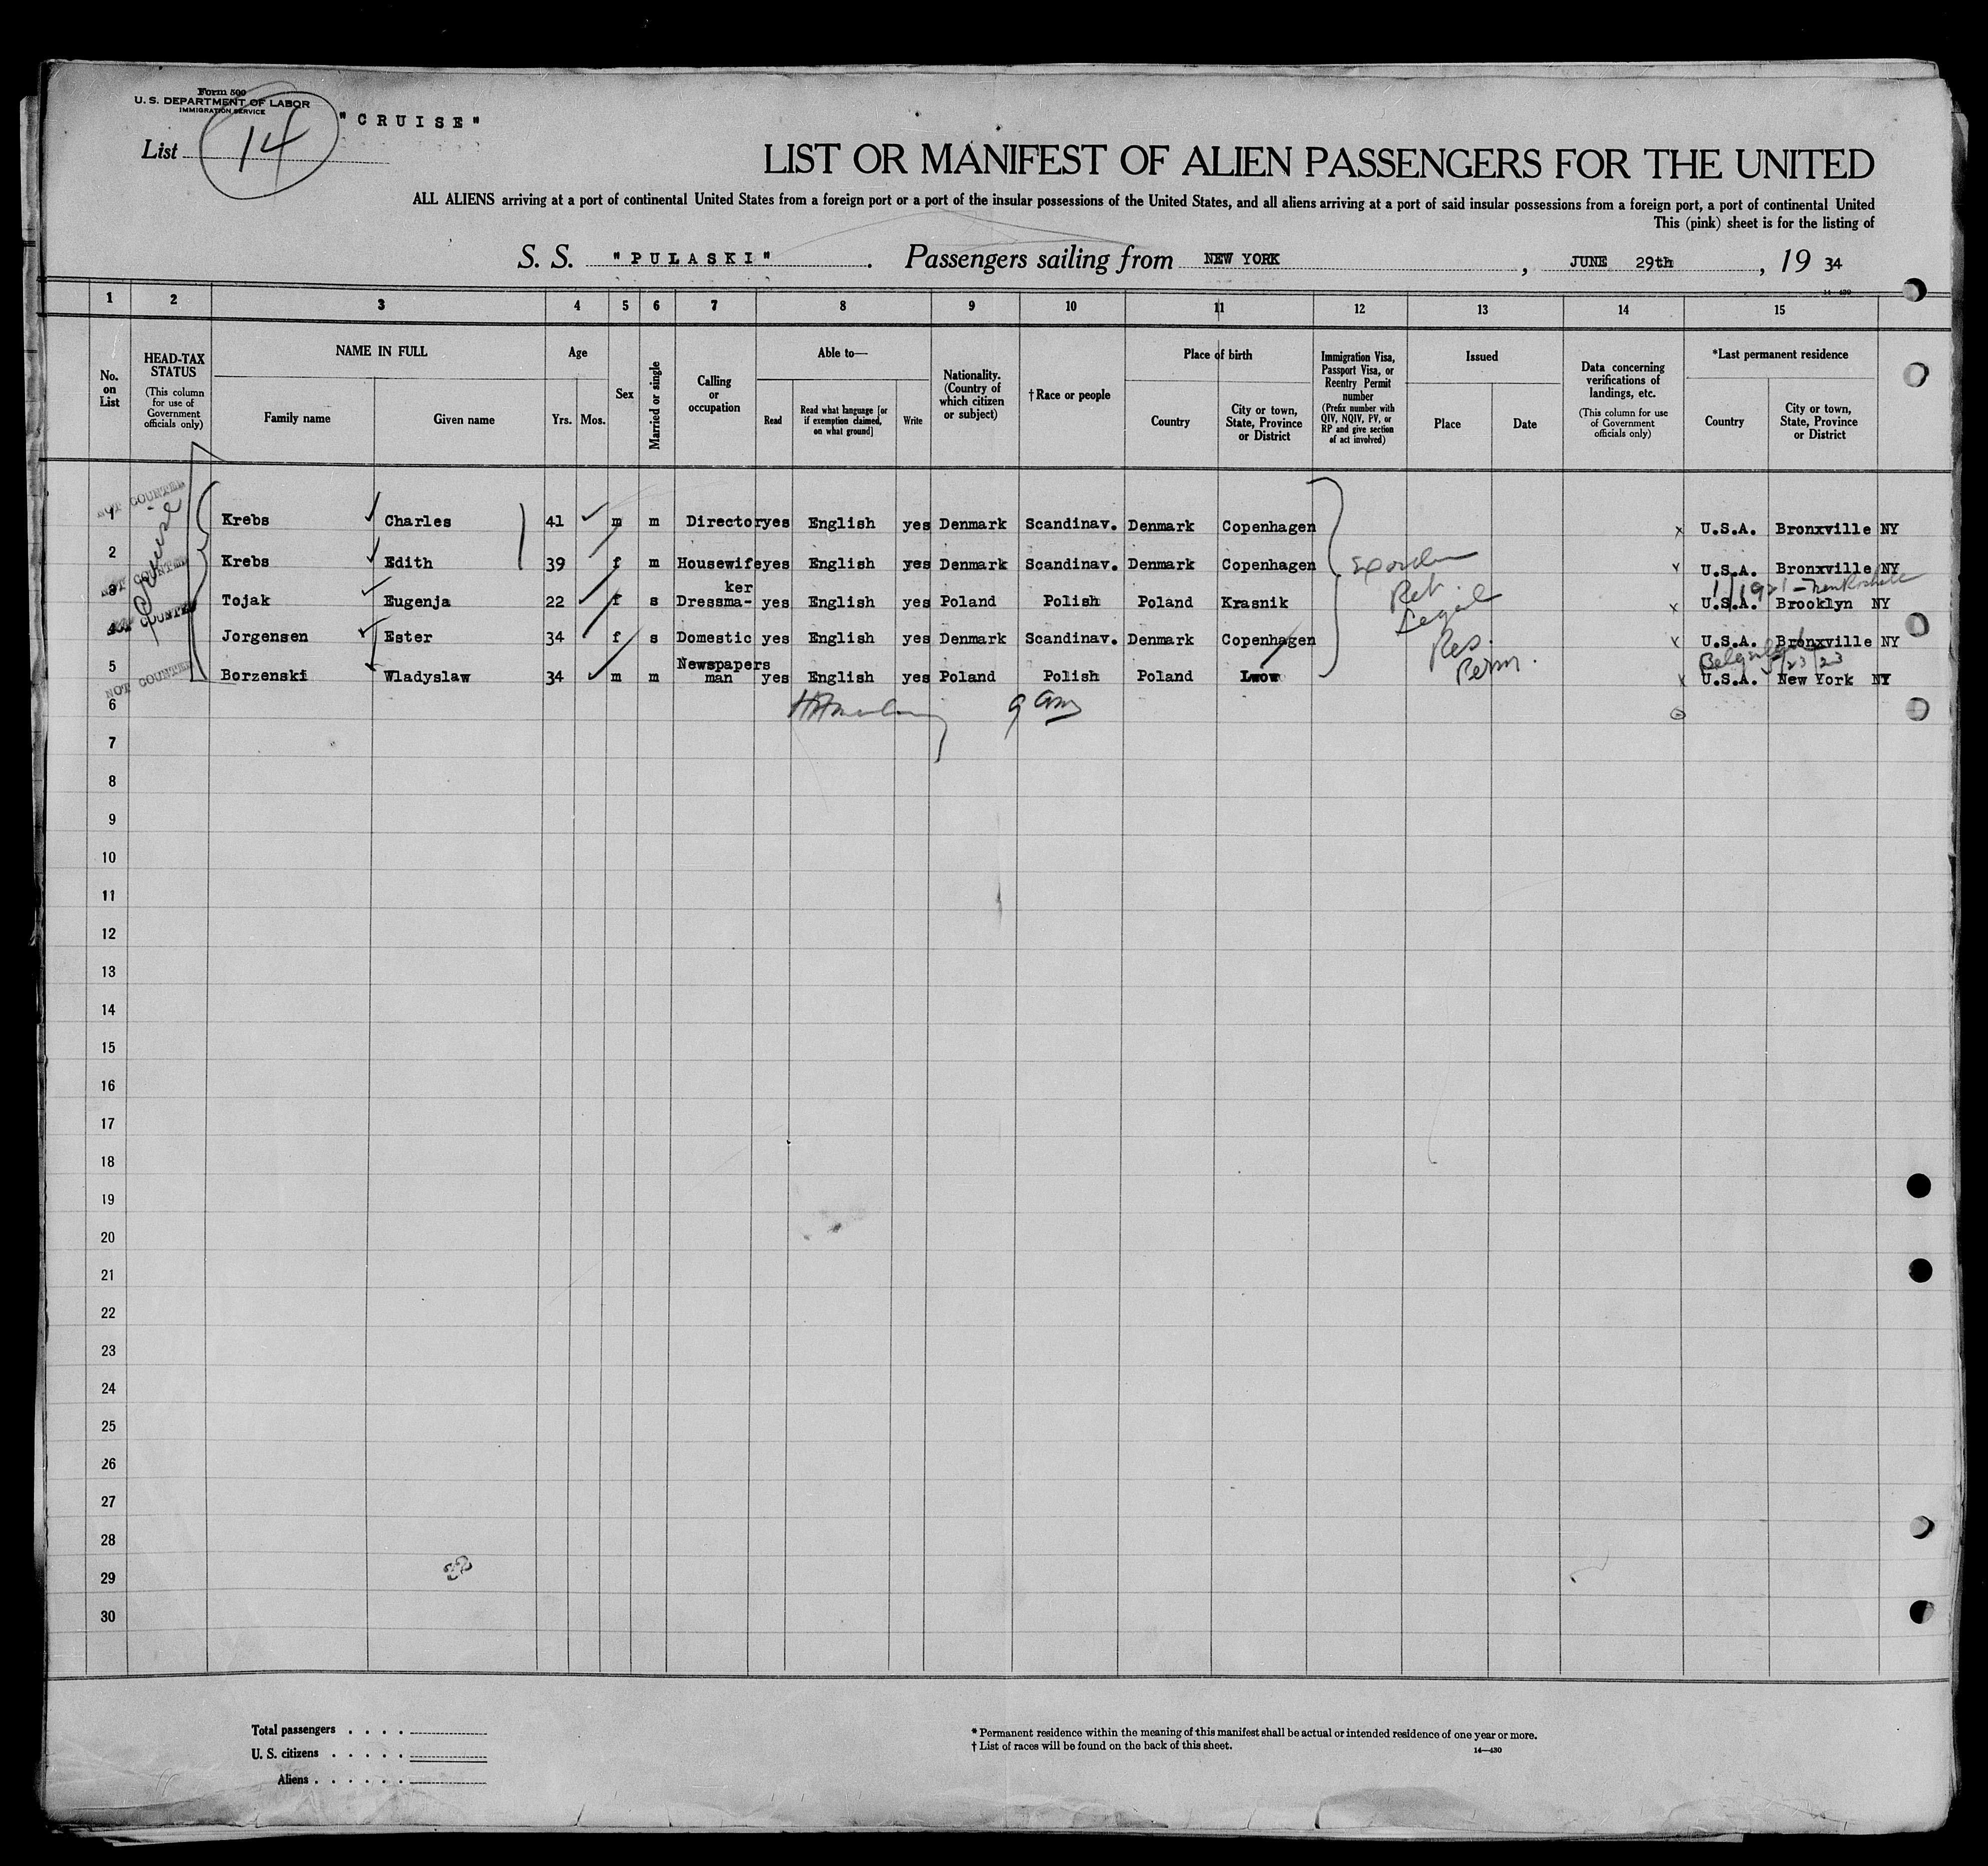 Form 500
U. S. DEPARTMENT OF LABOR
IMMIGRATION SERVICE
"CRUISE"
List 14
LIST OR MANIFEST OF ALIEN PASSENGERS FOR THE UNITED
ALL ALIENS arriving at a port of continental United States from a foreign port or a port of the insular possessions of the United States, and all aliens arriving at a port of said insular possessions from a foreign port, a port of continental United
This (pink) sheet is for the listing of
S. S. "PULASKI" . Passengers sailing from NEW YORK , JUNE 29th , 19 34
14—430
1 2 3 4 5 6 7 8 9 10 11 12 13 14 15
No. on List
HEAD-TAX STATUS (This column for use of Government officials only)
NAME IN FULL
Family name Given name
Age
Yrs. Mos.
Sex
Married or single
Calling or occupation
Able to—
Read Read what language [or if exemption claimed, on what ground] Write
Nationality. (Country of which citizen or subject)
†Race or people
Place of birth
Country City or town, State, Province or District
Immigration Visa, Passport Visa, or Reentry Permit number (Prefix number with QIV, NQIV, PV, or RP and give section of act involved)
Issued
Place Date
Data concerning verifications of landings, etc. (This column for use of Government officials only)
*Last permanent residence
Country City or town, State, Province or District
Cruise
NOT COUNTED
1 Krebs Charles 41 m m Director yes English yes Denmark Scandinav. Denmark Copenhagen x U.S.A. Bronxville NY
NOT COUNTED
2 Krebs Edith 39 f m Housewife yes English yes Denmark Scandinav. Denmark Copenhagen U.S.A. Bronxville NY
1921 -
ker
3 Tojak Eugenja 22 f s Dressma- yes English yes Poland Polish Poland Krasnik x U.S.A. Brooklyn NY
NOT COUNTED
4 Jorgensen Ester 34 f s Domestic yes English yes Denmark Scandinav. Denmark Copenhagen x U.S.A. Bronxville NY
Ret
Legal
Res.
Perm.
23
NOT COUNTED
Newspapers
5 Borzenski Wladyslaw 34 m m man yes English yes Poland Polish Poland Lwow x U.S.A. New York NY
6
7
8
9
10
11
12
13
14
15
16
17
18
19
20
21
22
23
24
25
26
27
28
29
30
Total passengers
U. S. citizens
Aliens
* Permanent residence within the meaning of this manifest shall be actual or intended residence of one year or more.
† List of races will be found on the back of this sheet.
14—430